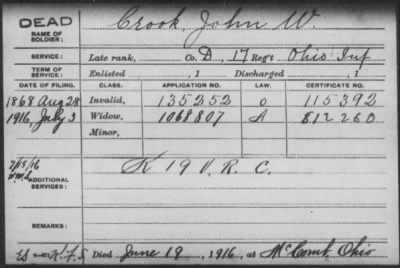 DEAD
NAME OF SOLDIER: Crook, John W.
SERVICE: Late rank, Co. D, 17 Reg't Ohio Inf
TERM OF SERVICE: Enlisted , 1 Discharged , 1
DATE OF FILING. CLASS. APPLICATION NO. LAW. CERTIFICATE NO.
1868 Aug 28 Invalid, 135252 O 115392
1916, July 3 Widow, 1068807 A 812260
Minor,
7/15/16
ADDITIONAL SERVICES: K 19 V. R. C.
REMARKS:
Died June 19, 1916, at McComb, Ohio